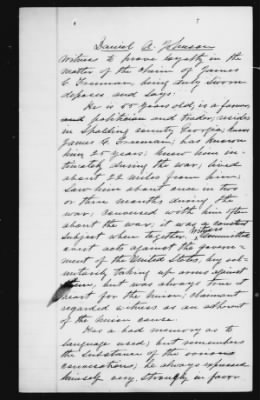 Daniel A. Johnson
Witness to prove loyalty in the
matter of the claim of James
C. Freeman, being duly sworn
deposes and says:
He is 55 years old, is a farmer,
and politician and trader, resides
in Spalding County Georgia; knows
James C. Freeman; has known
him 25 years; knew him in-
timately during the war, lived
about 22 miles from him;
saw him about once in two
or three months during the
war; conversed with him often
about the war, it was a constant
subject when together. Witness committed
overt acts against the govern-
ment of the United States, by vol-
untarily taking up arms against
them, but was always true at
heart for the Union; claimant
regarded witness as an adherent
of the Union cause.
Has a bad memory as to
language used, but remembers
the substance of the various
conversations; he always expressed
himself very strongly in favor